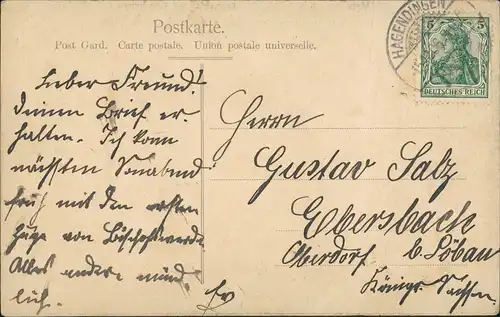 Postkarte.
Post Card. Carte postale. Union postale universelle.
HAGENDINGEN
5 5
DEUTSCHES REICH
Lieber Freund!
deinen Brief er-
halten. Ich komme
nächsten Sonnabend
früh mit den ersten
Zuge von Bischofswerda
Alles andere münd-
lich.
Herrn
Gustav Salz
Ebersbach
Oberdorf b. Löbau
Königr. Sachsen.